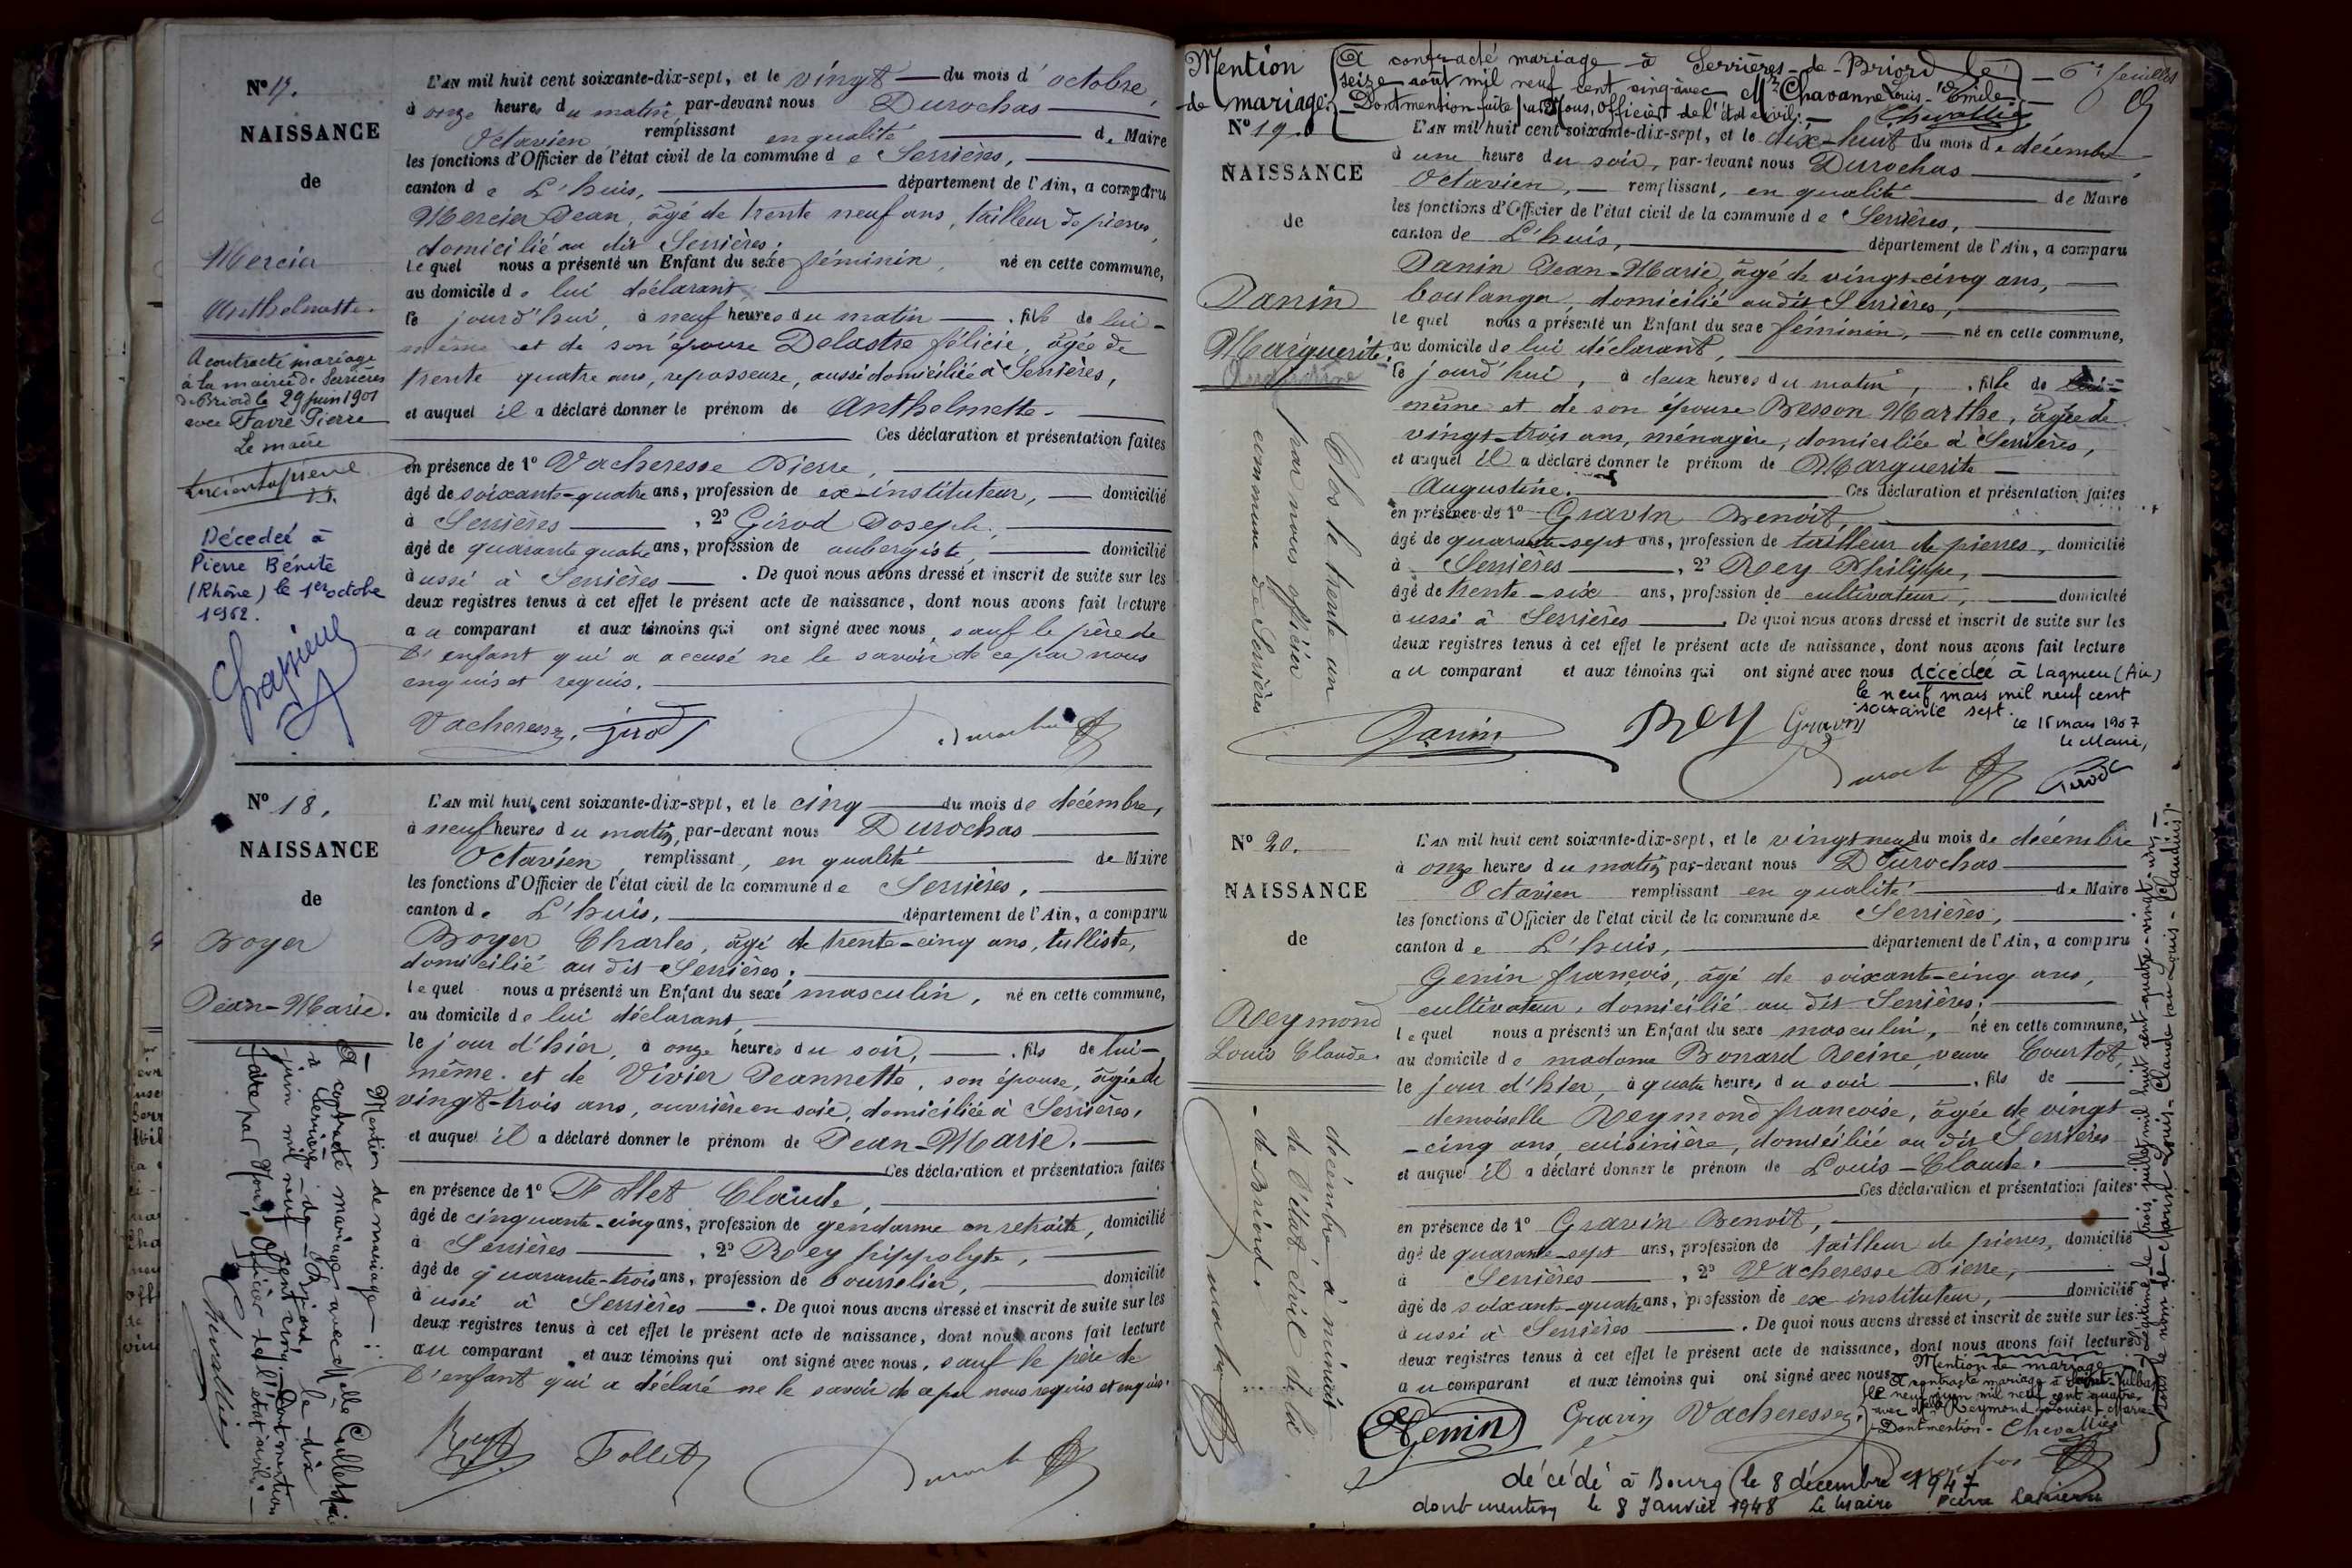 N° 17.
NAISSANCE
de
Mercier
Anthelmette.
A contracté mariage
à la mairie de Serrières
de Briord le 29 juin 1901
avec Favre Pierre
Le maire
Décedeé à
Pierre Bénite
(Rhône) le 1er octobre
1962.
L'AN mil huit cent soixante-dix-sept, et le vingt du mois d'octobre,
à onze heures du matin, par-devant nous Durochas
Octavien remplissant en qualité de Maire
les fonctions d'Officier de l'état civil de la commune de Serrières,
canton de L'huis, département de l'Ain, a comparu
Mercier Jean, âgé de trente neuf ans, tailleur de pierres,
domicilié au dit Serrières;
lequel nous a présenté un Enfant du sexe féminin, né en cette commune,
au domicile de lui déclarant
le jourd'hui, à neuf heures du matin, fille de lui-
même et de son épouse Delastre félicie, âgée de
trente quatre ans, repasseuse, aussi domiciliée à Serrières,
et auquel il a déclaré donner le prénom de Anthelmette.
Ces déclaration et présentation faites
en présence de 1° Vacheresse Pierre,
âgé de soixante-quatre ans, profession de ex-instituteur, domicilié
à Serrières, 2° Girod Joseph,
âgé de quarante quatre ans, profession de aubergiste, domicilié
aussi à Serrières. De quoi nous avons dressé et inscrit de suite sur les
deux registres tenus à cet effet le présent acte de naissance, dont nous avons fait lecture
au comparant et aux témoins qui ont signé avec nous, sauf le père de
l'enfant qui a accusé ne le savoir de ce par nous
enquis et requis.
Vacheresse. Girod
N° 18.
NAISSANCE
de
Boyer
Jean-Marie.
Mention de mariage
A contracté mariage avec Melle
à Serrières-de-Briord, le dix
juin mil neuf cent cinq. Dont mention
faite par Nous, Officier de l'état civil.
Chevallier
L'AN mil huit cent soixante-dix-sept, et le cinq du mois de décembre,
à neuf heures du matin, par-devant nous Durochas
Octavien remplissant, en qualité de Maire
les fonctions d'Officier de l'état civil de la commune de Serrières,
canton de L'huis, département de l'Ain, a comparu
Boyer Charles, âgé de trente-cinq ans, tulliste,
domicilié au dit Serrières;
lequel nous a présenté un Enfant du sexe masculin, né en cette commune,
au domicile de lui déclarant
le jour d'hier, à onze heures du soir, fils de lui-
même et de Vivier Jeannette, son épouse, âgée de
vingt-trois ans, ouvrière en soie, domiciliée à Serrières,
et auquel il a déclaré donner le prénom de Jean-Marie.
Ces déclaration et présentation faites
en présence de 1° Follet Claude,
âgé de cinquante-cinq ans, profession de gendarme en retraite, domicilié
à Serrières, 2° Rey hippolyte,
âgé de quarante-trois ans, profession de bourrelier, domicilié
aussi à Serrières. De quoi nous avons dressé et inscrit de suite sur les
deux registres tenus à cet effet le présent acte de naissance, dont nous avons fait lecture
au comparant et aux témoins qui ont signé avec nous, sauf le père de
l'enfant qui a déclaré ne le savoir de ce par nous requis et enquis.
Follet
Mention
de mariage:
A contracté mariage à Serrières-de-Briord le
seize août mil neuf cent cinq avec Mr Chavanne Louis-Emile.
Dont mention faite par Nous, Officier de l'état civil.
Chevallier
6e feuillet
N° 19.
NAISSANCE
de
Janin
Marguerite
Augustine
L'AN mil huit cent soixante-dix-sept, et le dix-huit du mois de décembre
à une heure du soir, par-devant nous Durochas
Octavien, remplissant, en qualité de Maire
les fonctions d'Officier de l'état civil de la commune de Serrières,
canton de L'huis, département de l'Ain, a comparu
Janin Jean-Marie, âgé de vingt-cinq ans,
boulanger, domicilié au dit Serrières,
lequel nous a présenté un Enfant du sexe féminin, né en cette commune,
au domicile de lui déclarant,
le jourd'hui, à deux heures du matin, fille de lui-
même et de son épouse Besson Marthe, âgée de
vingt-trois ans, ménagère, domiciliée à Serrières,
et auquel il a déclaré donner le prénom de Marguerite
Augustine. Ces déclaration et présentation faites
en présence de 1° Gravin Benoît,
âgé de quarante-sept ans, profession de tailleur de pierres, domicilié
à Serrières, 2° Rey Philippe,
âgé de trente-six ans, profession de cultivateur, domicilié
aussi à Serrières. De quoi nous avons dressé et inscrit de suite sur les
deux registres tenus à cet effet le présent acte de naissance, dont nous avons fait lecture
au comparant et aux témoins qui ont signé avec nous
décédée à Lagnieu (Ain)
le neuf mars mil neuf cent
soixante sept.
le 15 mars 1967
le Maire,
Janin Rey Gravin
Clos le trente un
décembre à minuit
par nous officier
de l'état civil de la
commune de Serrières
de Briord.
N° 20.
NAISSANCE
de
Reymond
Louis Claude.
L'AN mil huit cent soixante-dix-sept, et le vingt neuf du mois de décembre
à onze heures du matin par-devant nous Durochas
Octavien remplissant en qualité de Maire
les fonctions d'Officier de l'état civil de la commune de Serrières,
canton de L'huis, département de l'Ain, a comparu
Genin françois, âgé de soixante-cinq ans,
cultivateur, domicilié au dit Serrières;
lequel nous a présenté un Enfant du sexe masculin, né en cette commune,
au domicile de madame Bonard Reine, veuve Courtot,
le jour d'hier, à quatre heures du soir, fils de
demoiselle Reymond françoise, âgée de vingt
-cinq ans, cuisinière, domiciliée au dit Serrières
et auquel il a déclaré donner le prénom de Louis-Claude.
Ces déclaration et présentation faites
en présence de 1° Gravin Benoît,
âgé de quarante-sept ans, profession de tailleur de pierres, domicilié
à Serrières, 2° Vacheresse Pierre,
âgé de soixante-quatre ans, profession de ex instituteur, domicilié
aussi à Serrières. De quoi nous avons dressé et inscrit de suite sur les
deux registres tenus à cet effet le présent acte de naissance, dont nous avons fait lecture
au comparant et aux témoins qui ont signé avec nous
Mention de mariage
A contracté mariage à Saint-Vulbas
le neuf juin mil neuf cent quatre
avec Melle Reymond Louise-Marie
Dont mention - Chevallier
Légitimé le trois juillet mil huit cent quatre-vingt-un
sous le nom de Marin Louis-Claude
Genin Gravin Vacheresse
décédé à Bourg le 8 décembre 1947
dont mention le 8 Janvier 1948 Le Maire